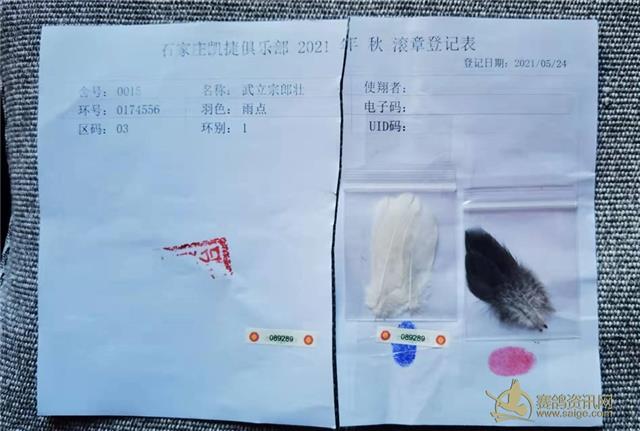 石家庄凯捷俱乐部 2021 年 秋 滚章登记表
登记日期: 2021/05/24
舍号: 0015 名称: 武立宗郎壮 使翔者:
环号: 0174556 羽色: 雨点 电子码:
区码: 03 环别: 1 UID码:
089289 089289
赛鸽资讯网
www.saige.com